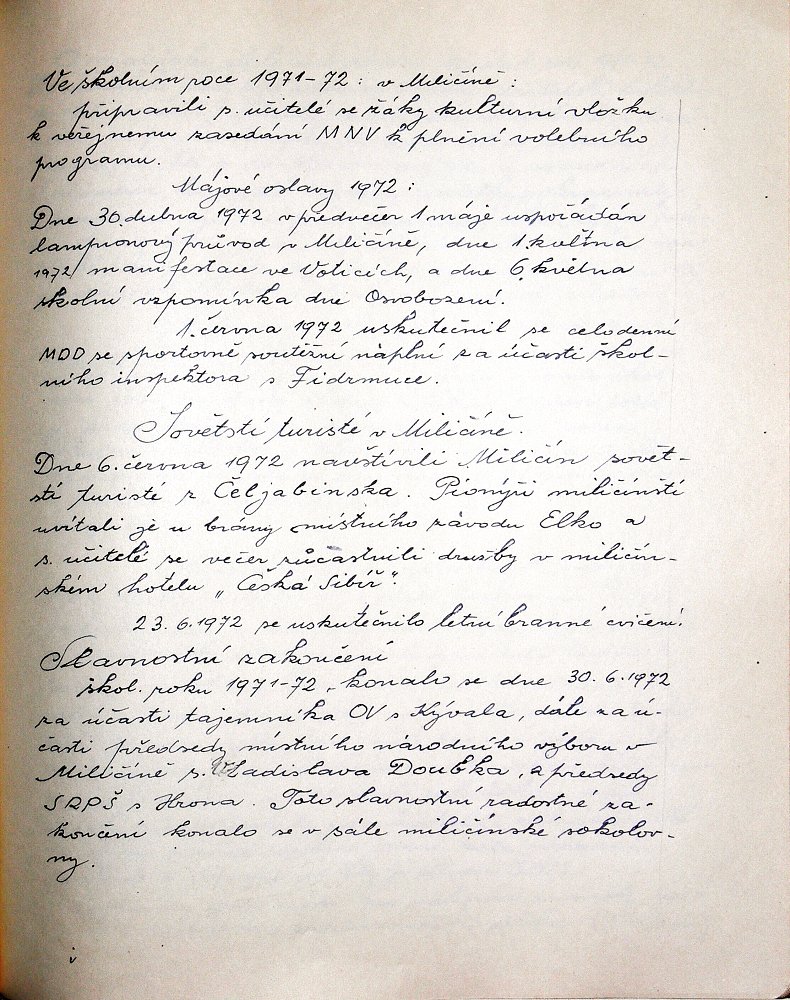 Ve školním roce 1971-72: v Miličíně:
připravili s. učitelé se žáky kulturní vložku
k veřejnemu zasedání MNV k plnění volebního
programu.
Májové oslavy 1972:
Dne 30. dubna 1972 v předvečer 1 máje uspořádán
lampionový průvod v Miličíně, dne 1. května
1972 manifestace ve Voticích, a dne 6. května
školní vzpomínka dne Osvobození.
1. června 1972 uskutečnil se celodenní
MDD se sportovně soutěžní náplní za účasti škol-
ního inspektora s Fidrmuce.
Sovětstí turisté v Miličíně.
Dne 6. června 1972 navštívili Miličín sovět-
stí turisté z Čeljabinska. Pionýři miličínstí
uvítali je u brány místního závodu Elko a
s. učitelé se večer zůčastnili družby v miličín-
ském hotelu „Česká Sibiř".
23.6.1972 se uskutečnilo letní branné cvičení.
Slavnostní zakončení
škol. roku 1971-72, konalo se dne 30.6.1972
za účasti tajemníka OV s Kývala, dále za ú-
časti předsedy místního národního výboru v
Miličíně s. Vladislava Doubka, a předsedy
SRPŠ s Hrona. Toto slavnostní radostné za-
končení konalo se v sále miličínské sokolov-
ny.